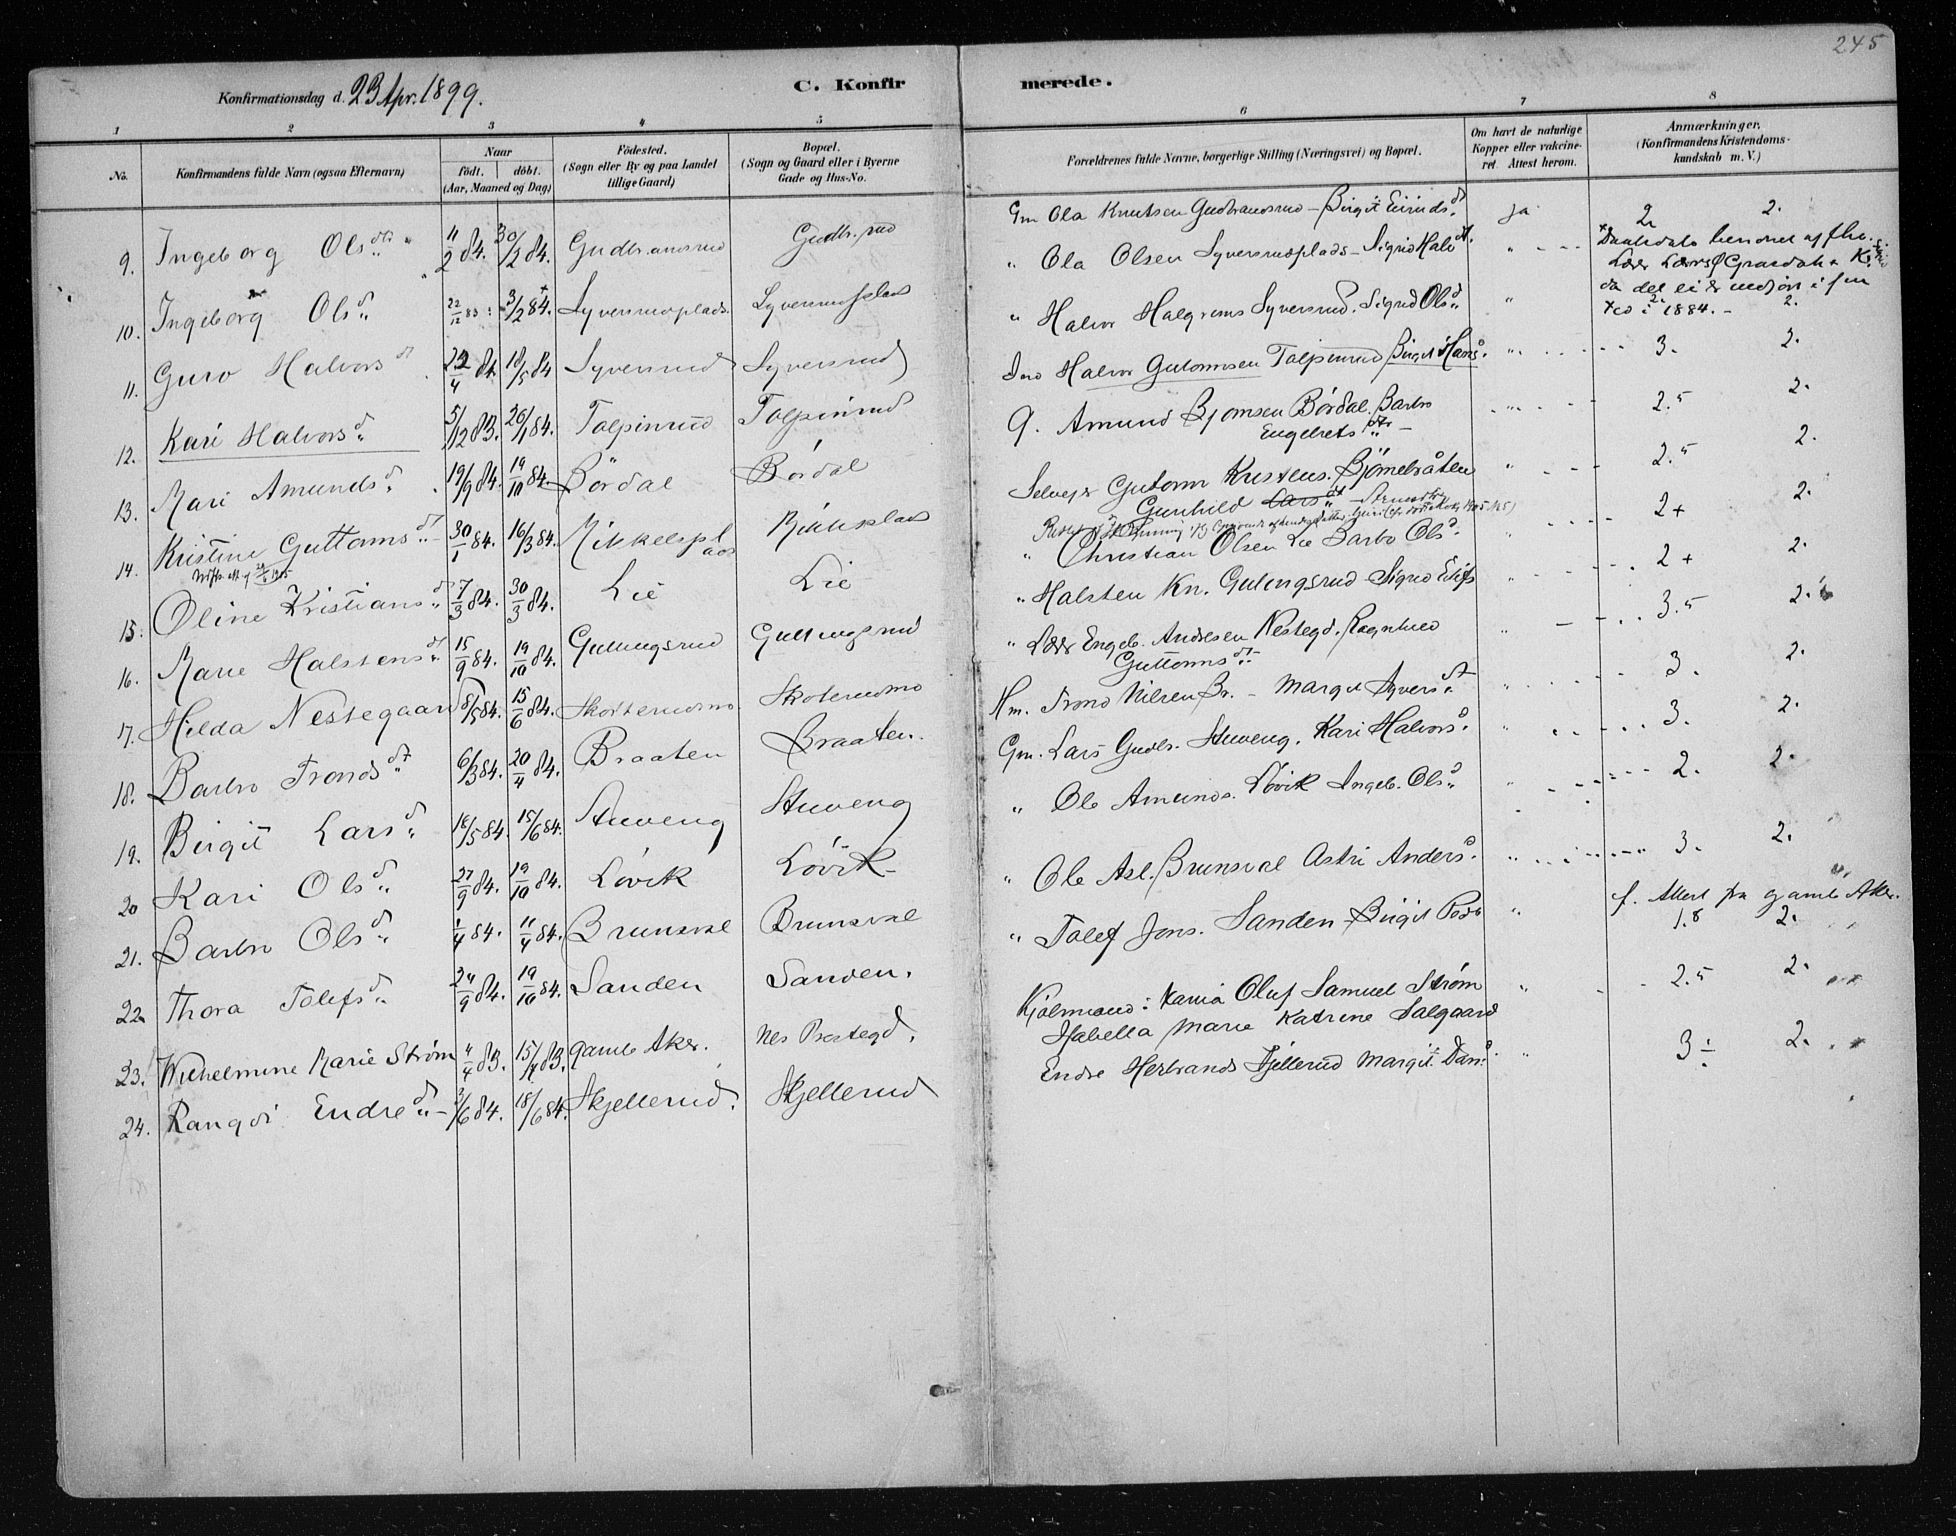 245
Konfirmationsdag d. 23 Apr. 1899.
C. Konfirmerede.
1 2 3 4 5 6 7 8
No.
Konfirmandens fulde Navn (ogsaa Efternavn)
Naar
födt. döbt.
(Aar, Maaned og Dag)
Födested.
(Sogn eller By og paa Landet
tillige Gaard)
Bopæl.
(Sogn og Gaard eller i Byerne
Gade og Hus-No.
Forældrenes fulde Navne, borgerlige Stilling (Næringsvei) og Bopæl.
Om havt de naturlige
Kopper eller vakcine-
ret Attest herom.
Anmærkninger.
(Konfirmandens Kristendoms-
kundskab m. V.)
9. Ingeborg Olsdtr 11/2 84. 30/2 84. Gudbransrud Gudbr.rud Gm Ola Knutsen Gudbransrud - Birgit Eirindsd. ja 2 2.
10. Ingeborg Olsd 22/12 83 3/2 84. + Syversrudplads Syversrudplads " Ola Olsen Syversrudplads - Sigrid Halsdt. "
i 1884. - 2. 2.
11. Guro Halvorsdt 22/4 84 18/5 84 Syversrud Syversrud " Halvor Halgrims Syversrud. Sigrid Olsd " 3. 2.
12. Kari Halvorsd. 5/12 83. 20/1 84. Tolpinrud Tolpinrud Halvor Gutormsen Tolpinrud Birgit Hansd. " 2.5 2.
13. Kari Amundsd. 19/9 84. 19/10 84. Bördal Bördal G. Amund Bjornsen Bördal. Barbo
Engebretsdtr - " 2.5 2.
14. Kristine Guttormsdt 30/1 84. 16/3 84. Mikkelsplads Mikkelsplads Selvejer Gutorm Kristens. Björnebråten
Gunhild Larsdt " 2+ 2.
15. Oline Kristiansd 7/3 84. 30/3 84. Lie Lie " Christian Olsen Lie Barbo Olsd. " 2+ 2.
16. Marie Halstensdt 15/9 84. 19/10 84. Gulingsrud Gullingsrud " Halsten Kn. Gulingsrud Sigrid Eilifs " 3.5 2.
17. Hilda Nestegaard 8/5 84. 15/6 84. Skoterudmo Skoterudmo " Lærer Engeb. Andresen Nestegd. Ragnhild
Guttormsdt. " 3. 2.
18. Barbo Trondsdt 6/3 84. 20/4 84. Braaten Braaten. Hm. Trond Nilsen Br. - Margit Syversdt " 3. 2.
19. Birgit Larsd. 18/5 84. 15/6 84. Stuveng Stuveng Gm. Lars Gudbr. Stuveng. Kari Halvorsd. " 2. 2.
20 Kari Olsd. 27/9 84. 19/10 84. Lövik Lövik " Ole Amunds. Lövik Ingeb. Olsd " 3. 2.
21. Barbo Olsd. 1/4 84. 11/4 84. Brunsval Brunsval " Ole Asl. Brunsval Astri Andersd. "
22. Thora Tolefsd. 24/9 84. 19/10 84. Sanden Sanden. " Tolef Jons. Sanden Birgit " 1.8 2.
23. Wilhelmine Marie Ström 4/4 83. 15/4 83. gamle Aker. Nes Prestegd. Kjöbmand: Oluf Samuel Ström
Isabella Marie Katrine Salgaard " 2.5 2.
f. Attest fra gamle Aker.
24. Rangdi Endred. 3/6 84. 18/6 84. Skjellerud. Skjellerud Endre Herbrands Skjellerud Margit " 3÷ 2.